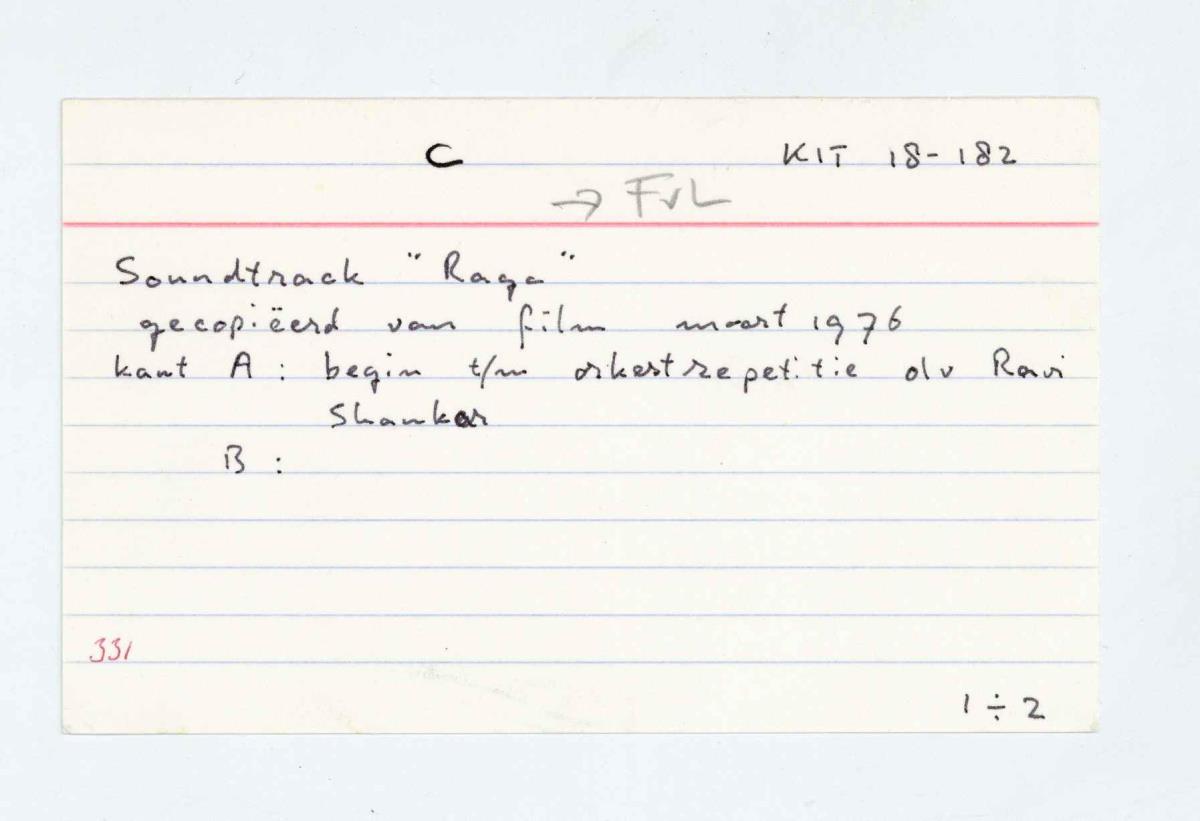 C KIT 18-182
→ FvL
Soundtrack "Raga"
gecopiëerd van film maart 1976
kant A : begin t/m orkestrepetitie olv Ravi
Shankar
B :
331
1 ÷ 2